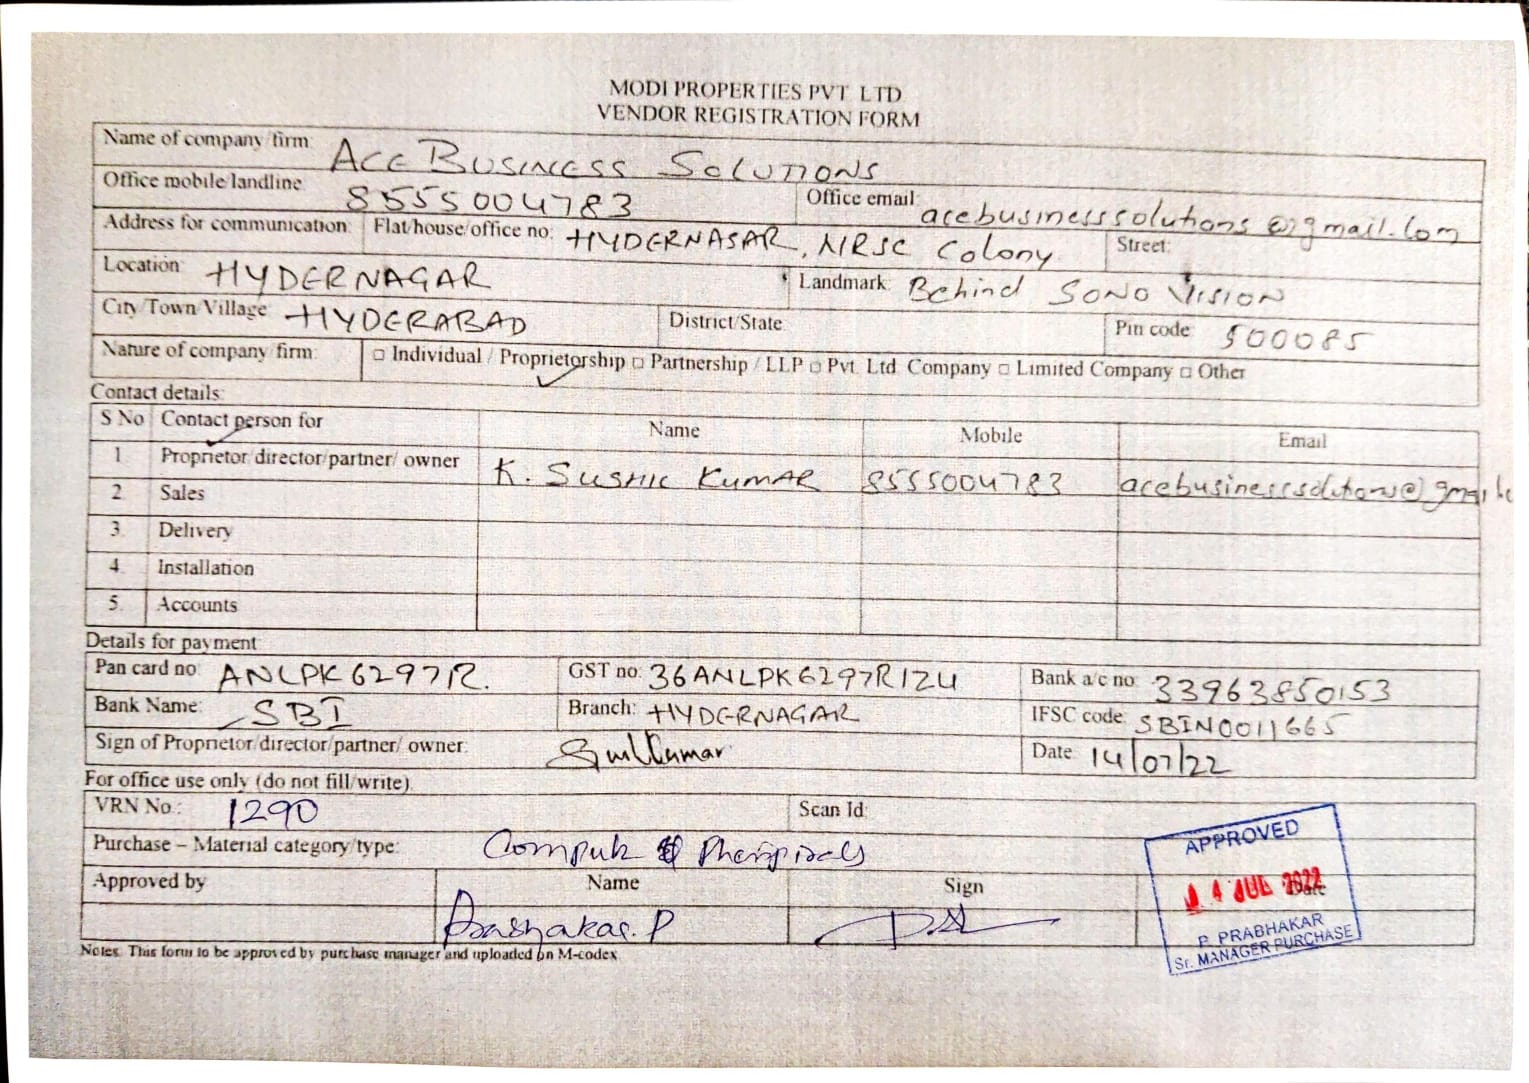 MODI PROPERTIES PVT LTD
VENDOR REGISTRATION FORM
Name of company/firm: ACE BUSINESS SOLUTIONS
Office mobile/landline: 8555004783 Office email: acebusinesssolutions@gmail.com
Address for communication: Flat/house/office no: HYDERNAGAR, NRSC Colony Street:
Location: HYDERNAGAR Landmark: Behind SONO VISION
City/Town/Village: HYDERABAD District/State: Pin code: 500085
Nature of company firm: □ Individual / Proprietorship □ Partnership / LLP □ Pvt. Ltd. Company □ Limited Company □ Other
Contact details:
S No Contact person for Name Mobile Email
1. Proprietor/director/partner/ owner K. SUSHIL KUMAR 8555004783 acebusinesssolutions@gmail.
2. Sales
3. Delivery
4. Installation
5. Accounts
Details for payment:
Pan card no: ANLPK6297R. GST no: 36ANLPK6297R1ZU Bank a/c no: 33963850153
Bank Name: SBI Branch: HYDERNAGAR IFSC code: SBIN0011665
Sign of Proprietor/director/partner/ owner: Date: 14/07/22
For office use only (do not fill/write)
VRN No.: 1290 Scan Id:
Purchase – Material category/type:
Approved by Name Sign Date
Prabhakar. P
Notes: This form to be approved by purchase manager and uploaded on M-codex
APPROVED
14 JUL 2022
P. PRABHAKAR
Sr. MANAGER PURCHASE